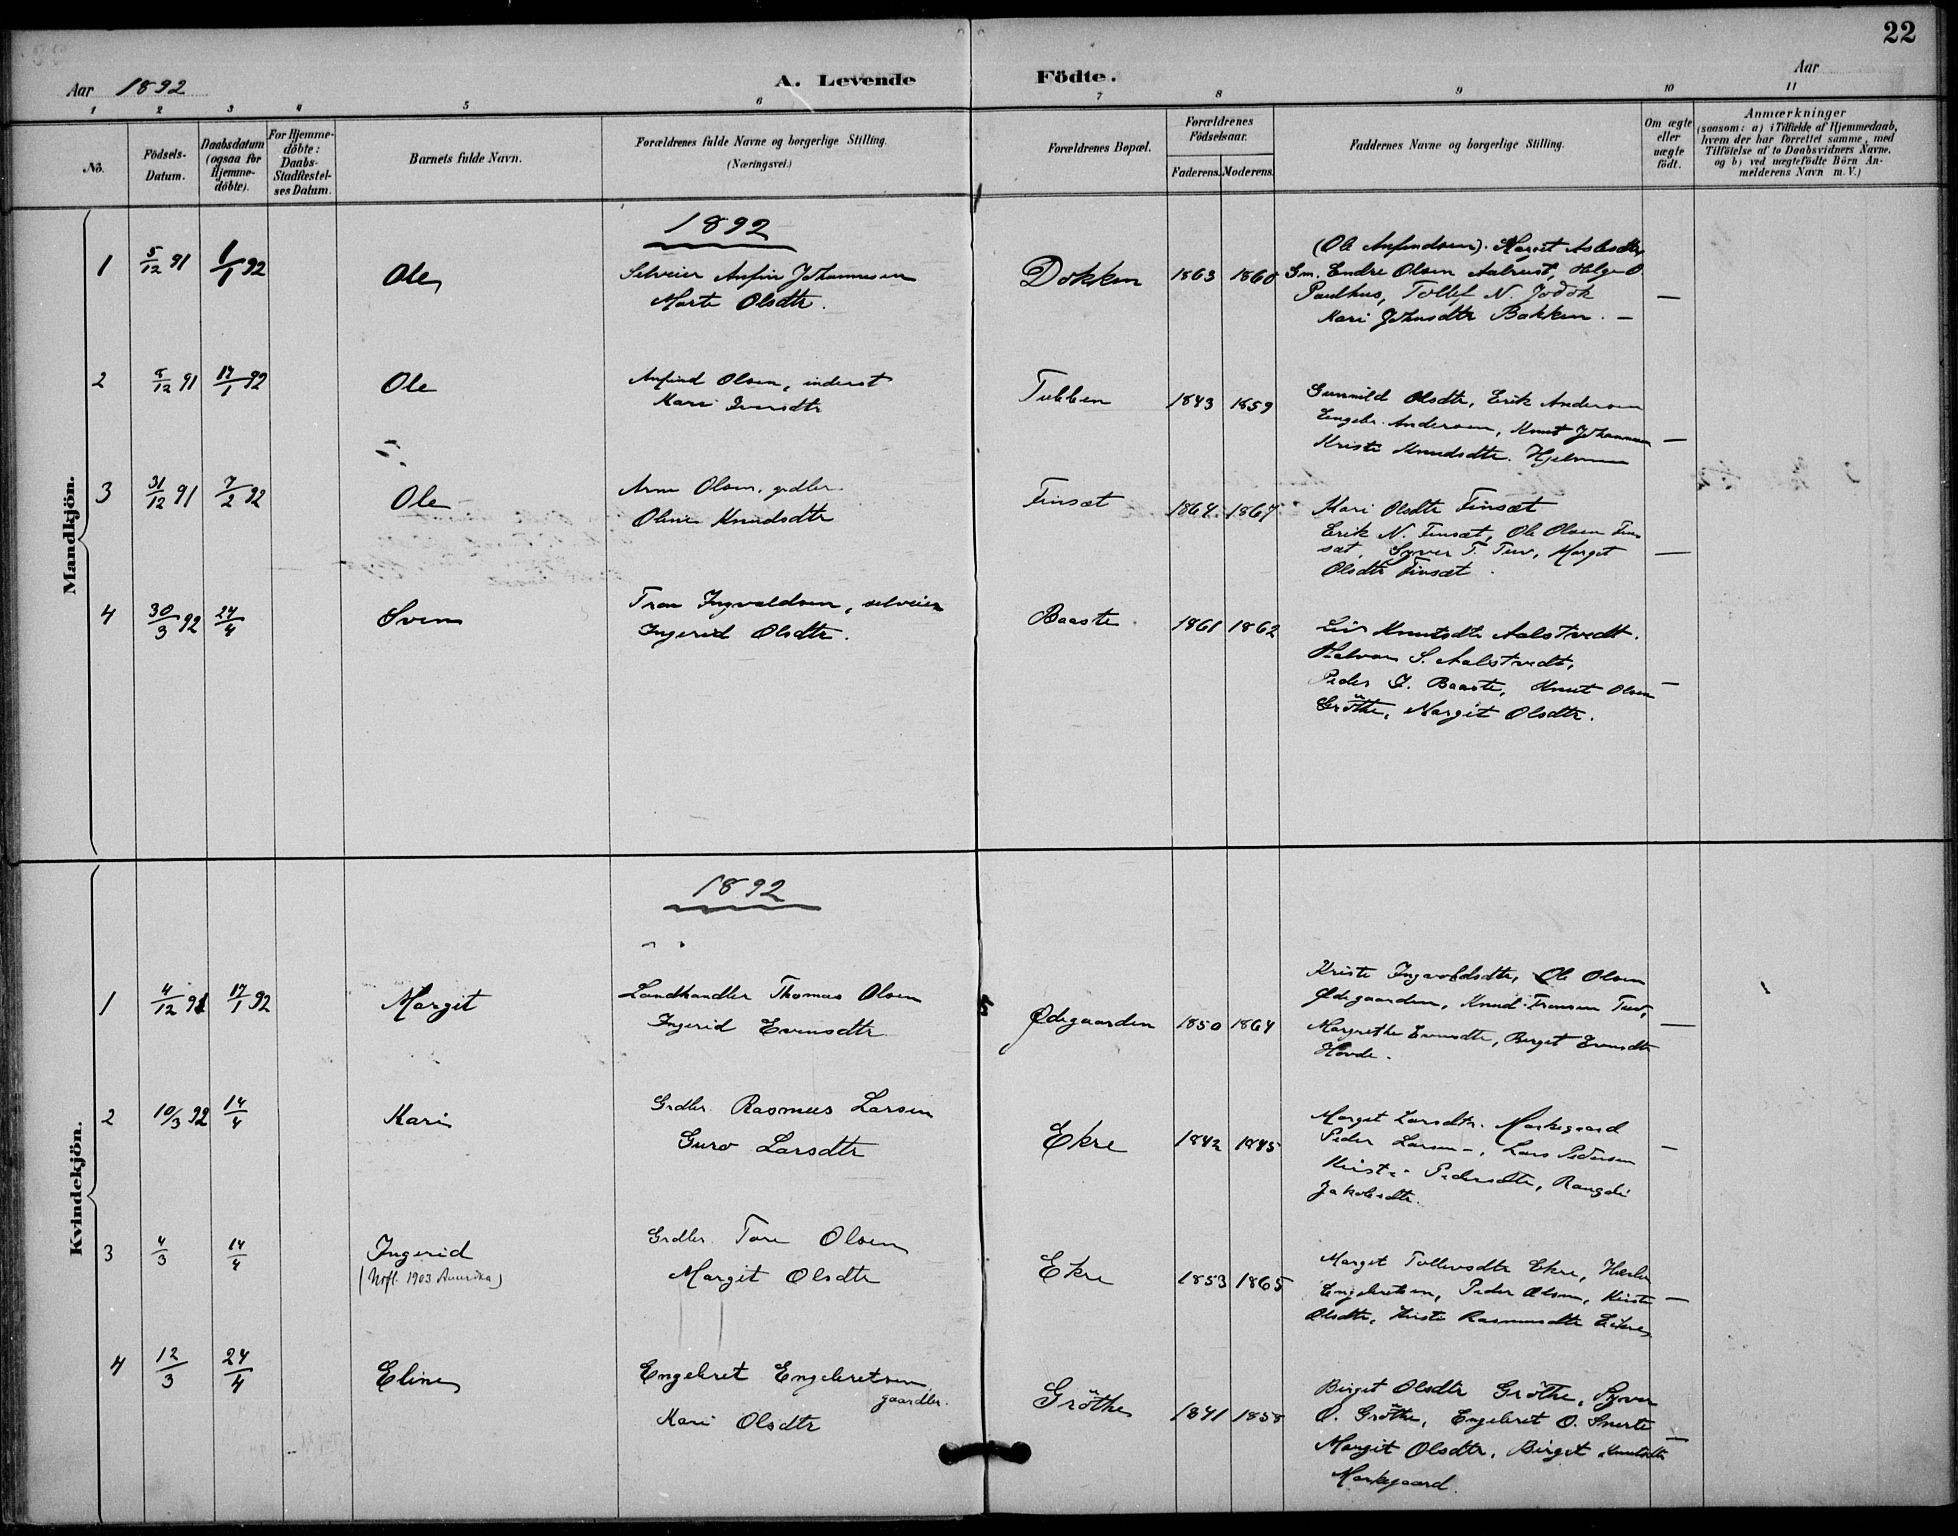 22
Aar 1892
A. Levende Födte.
Aar
1 2 3 4 5 6 7 8 9 10 11
No.
Födsels-Datum.
Daabsdatum (ogsaa for Hjemme-döbte).
For Hjemme-döbte: Daabs-Stadfæstel-ses Datum.
Barnets fulde Navn.
Forældrenes fulde Navne og borgerlige Stilling. (Næringsvei.)
Forældrenes Bopæl.
Forældrenes Födselsaar.
Faderens. Moderens.
Faddernes Navne og borgerlige Stilling.
Om ægte eller uægte födt.
Anmærkninger
(saasom: a) i Tilfælde af Hjemmedaab,
hvem der har forrettet samme, med
Tilföielse af to Daabsvidners Navne.
og b) ved uægtefödte Börn An-
melderens Navn m. V.)
Mandkjön.
1892
1 5/12 91 1/1 92 Ole Selveier Anfin Johannesen Dokken 1863 1860 (Ole Anfindsen). Margit Aslesdtr
Marte Olsdtr. Gm. Endre Olsen Aalrust, Helge O.
Paulhus, Tollef N. Jodok —
Mari Johnsdtr Bakken. —
2 5/12 91 17/1 92 Ole Anfind Olsen, inderst Tubben 1843 1859 Gunnild Olsdtr, Erik Andersen
Mari Iversdtr Engebr. Andersen, Knut Johannesen —
Kristi Knudsdtr. Hjelmen
3 31/12 91 7/2 92 Ole Arne Olsen, grdbr. Finsæt 1864 1867 Mari Olsdtr Finsæt
Oline Knudsdtr Erik N. Finsæt, Ole Olsen Fin
sæt, Syver T. Tuv, Marget —
Olsdtr Finsæt.
4 30/3 92 24/4 Sven Tron Ingvaldsen, selveier Baaste 1861 1862 Liv Knutsdtr Aalstvedt.
Ingerid Olsdtr. Halvor S. Aalstvedt,
Peder I. Baaste, Knut Olsen —
Gröthe, Margit Olsdtr.
Kvindekjön.
1892
1 4/12 91 17/1 92 Margit Landhandler Thomas Olsen Ødegaarden 1850 1864 Kristi Ingvoldsdtr, Ole Olsen
Ingerid Evensdtr Ødegaarden, Knud Tronsen Tuv,
Margrethe Evensdtr, Berget Evensdtr —
Hovde.
2 10/3 92 14/4 Kari Grdbr. Rasmus Larsen Ekre 1842 1845 Marget Larsdtr. Markegaard
Guro Larsdtr Peder Larsen —, Lars Pedersen —
Kirsti Pedersdtr, Rangdi
Jakobsdtr.
3 4/3 14/4 Ingerid Grdbr. Tore Olsen Ekre 1853 1865 Marget Tollevsdtr Ekre,
(Utfl. 1903 Amerika) Margit Olsdtr Engebretsen, Peder Olsen, Kirsti —
Olsdtr, Kirsti Rasmusdtr Ekre
4 12/3 24/4 Eline Engebret Engebretsen Gröthe 1841 1858 Birget Olsdtr Gröthe, Syver
gaardbr. O. Gröthe, Engebret O. Snerte —
Kari Olsdtr Margit Olsdtr, Birget Knutsdtr
Markegaard.